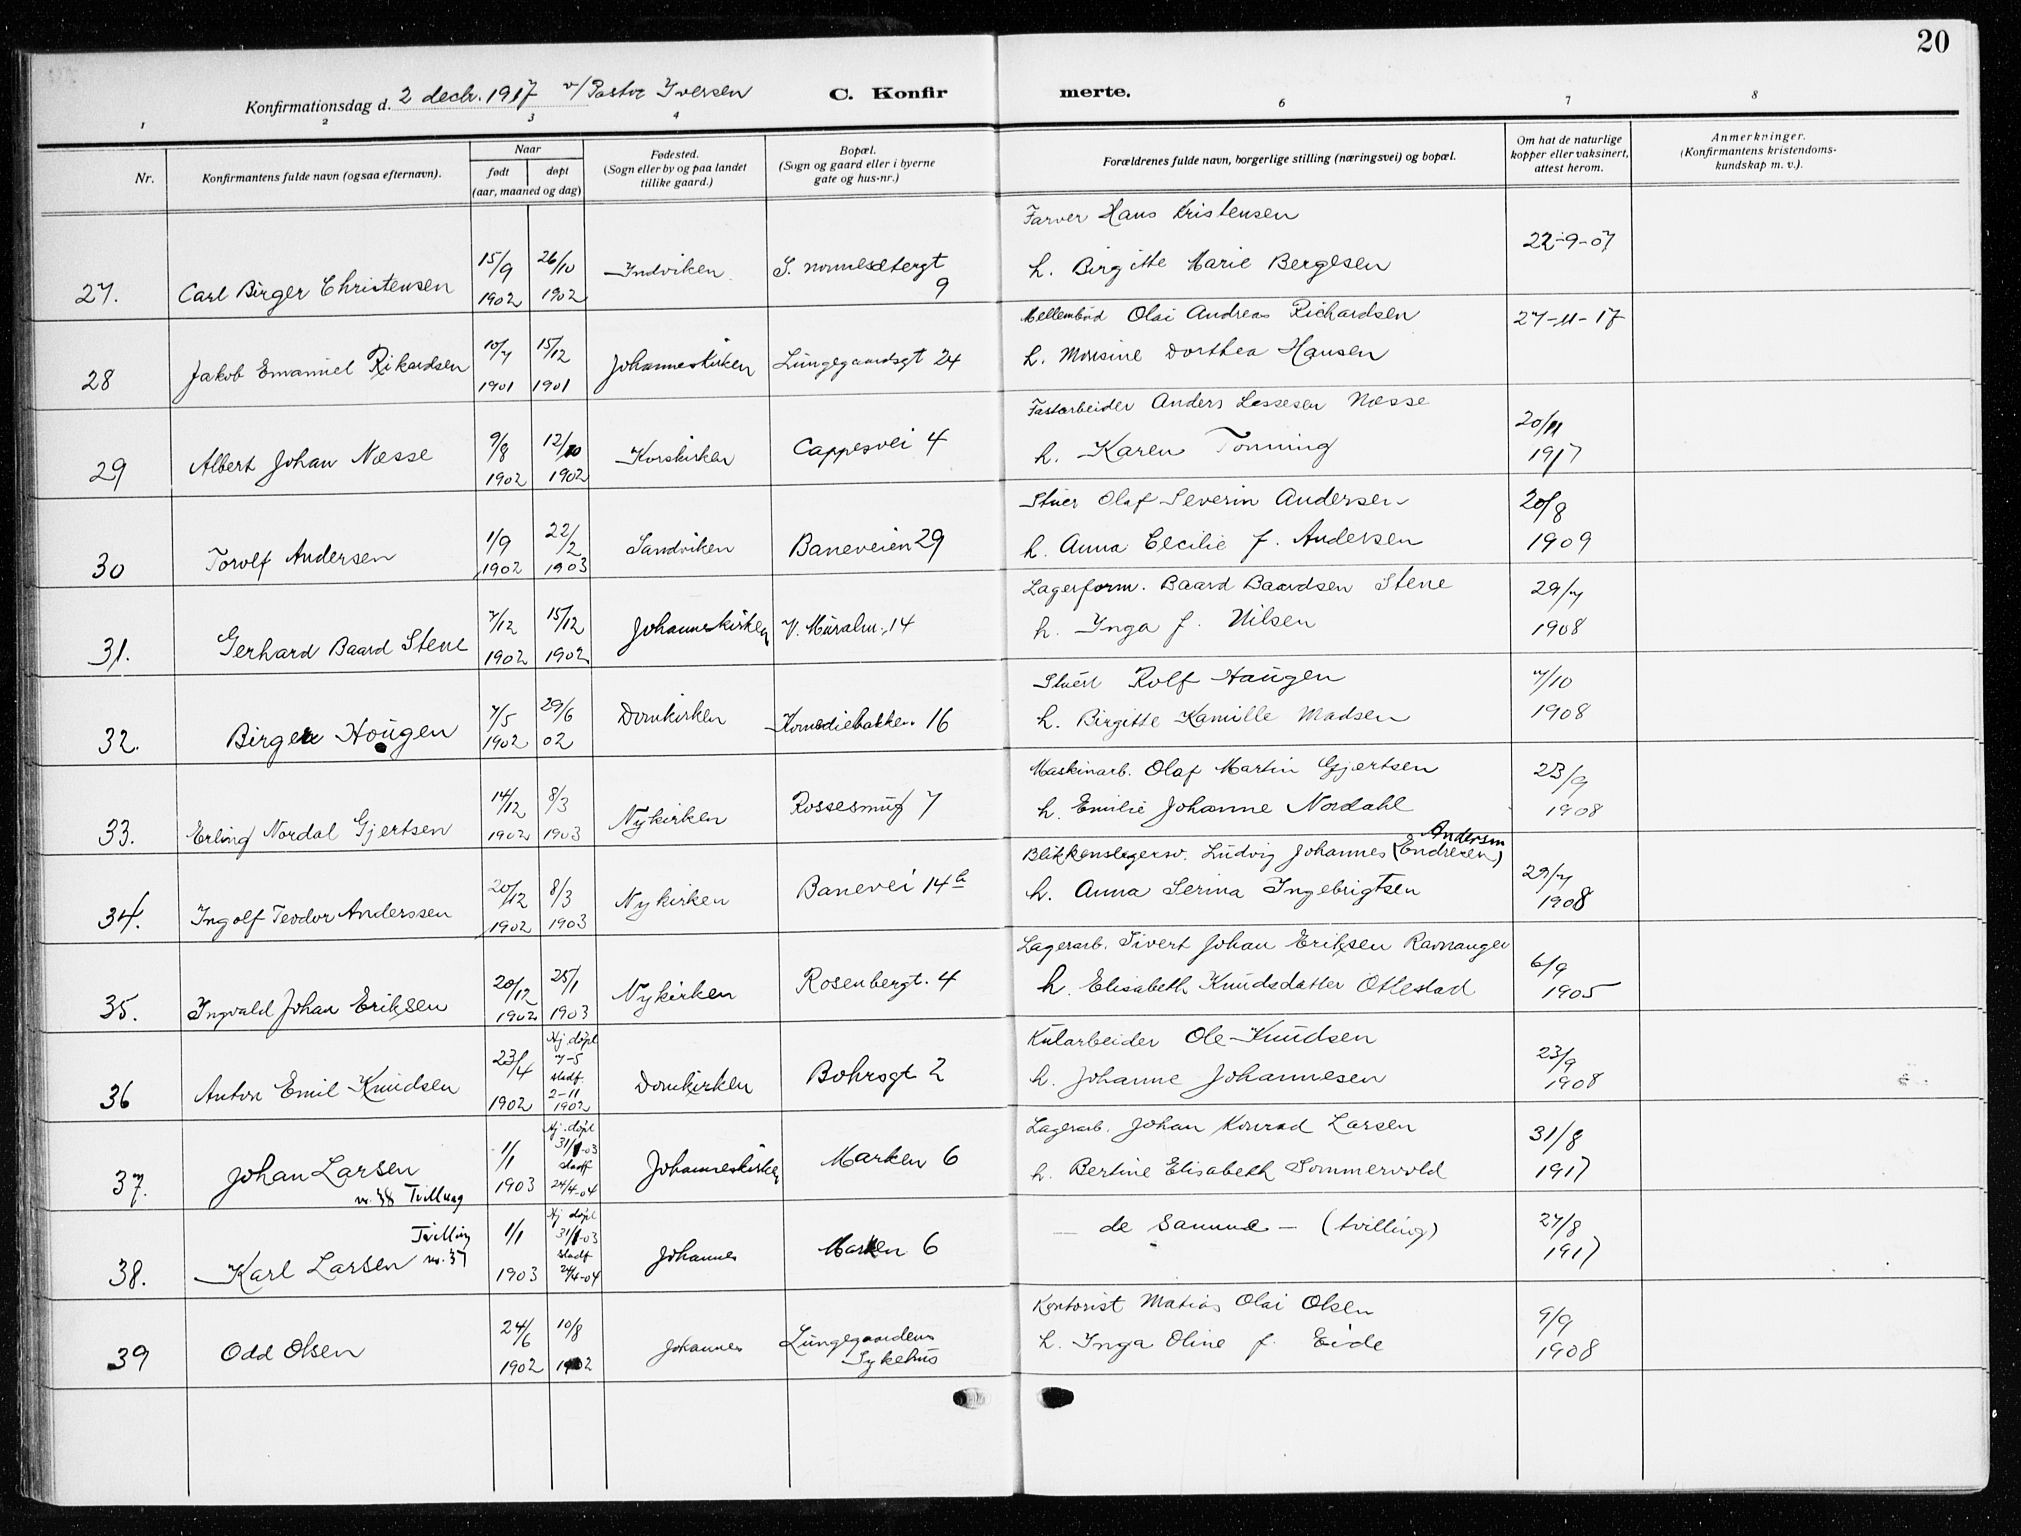 20
Konfirmationsdag d. 2 decbr. 1917 v/ Pastor Iversen
C. Konfirmerte.
1 2 3 4 6 7 8
Nr.
Konfirmantens fulde navn (ogsaa efternavn).
Naar
født døpt
(aar, maaned og dag)
Fødested.
(Sogn eller by og paa landet
tillike gaard.)
Bopæl.
(Sogn og gaard eller i byerne
gate og hus-nr.)
Forældrenes fulde navn, borgerlige stilling (næringsvei) og bopæl.
Om hat de naturlige
kopper eller vaksinert,
attest herom.
Anmerkninger.
(Konfirmantens kristendoms-
kundskap m. v.).
27. Carl Birger Christensen 15/9 1902 26/10 1902 Indviken S. 9
Farver Hans Kristensen
h. Birgitte Marie Bergesen
22-9-07
28 Jakob Emanuel Rikardsen 10/7 1901 15/12 1901 Johanneskirken Lungegaardsgt 24
Mellembud Olai Andreas Richardsen
h. Monsine Dorthea Hansen
27-11-17
29 Albert Johan Næsse 9/8 1902 12/10 1902 Korskirken Cappesvei 4
Fastarbeider Anders Lassesen Næsse
h. Karen Tonning
20/11
1917
30 Torolf Andersen 1/9 1902 22/2 1903 Sandviken Baneveien 29
Stuer Olaf Severin Andersen
h. Anna Cecilie f. Andersen
20/8
1909
31. Gerhard Baard Stene 7/12 1902 15/12 1902 Johanneskirken V. Muralm. 14
Lagerform. Baard Baardsen Stene
h. Inga f. Nilsen
29/7
1908
32. Birger Hougen 7/5 1902 29/6 02 Domkirken Komediebakken 16
Stuert Rolf Haugen
h. Birgitte Kamille Madsen
7/10
1908
33. Erling Nordal Gjertsen 14/12 1902 8/3 1903 Nykirken Rossesmug 7
Maskinarb. Olaf Martin Gjertsen
h. Emilie Johanne Nordahl
23/9
1908
34. Ingolf Teodor Anderssen 20/12 1902 8/3 1903 Nykirken Banevei 14 b
Andersen
Blikkenslagersv. Ludvig Johannes (Endresen)
h. Anna Serina Ingebrigtsen
29/7
1908
35. Ingvald Johan Eriksen 20/12 1902 25/1 1903 Nykirken Rosenbergt. 4
Lagerarb. Sivert Johan Eriksen Ravnanger
h. Elisabeth Knudsdatter Ottestad
6/9
1905
36 Anton Emil Knudsen 23/4 1902 Hj. døpt 7-5 stadf. 2-11 1902 Domkirken Bohrsgt 2
Kularbeider Ole Knudsen
h. Johanne Johannesen
23/9
1908
37. Johan Larsen nr. 38 Tvilling 1/1 1903 Hj. døpt 31/1-03 stadf 24/4-04 Johanneskirken Marken 6
Lagerarb. Johan Konrad Larsen
h. Bertine Elisabeth Sommervold
31/8
1917
38. Karl Larsen Tvilling nr. 37 1/1 1903 Hj døpt 31/1-03 stadf 24/4-04 Johannes Marken 6
— de samme — (tvilling)
27/8
1917
39 Odd Olsen 24/6 1902 10/8 1902 Johannes Lungegaardens Sykehus
Kontorist Matias Olai Olsen
h. Inga Oline f. Eide
9/9
1908